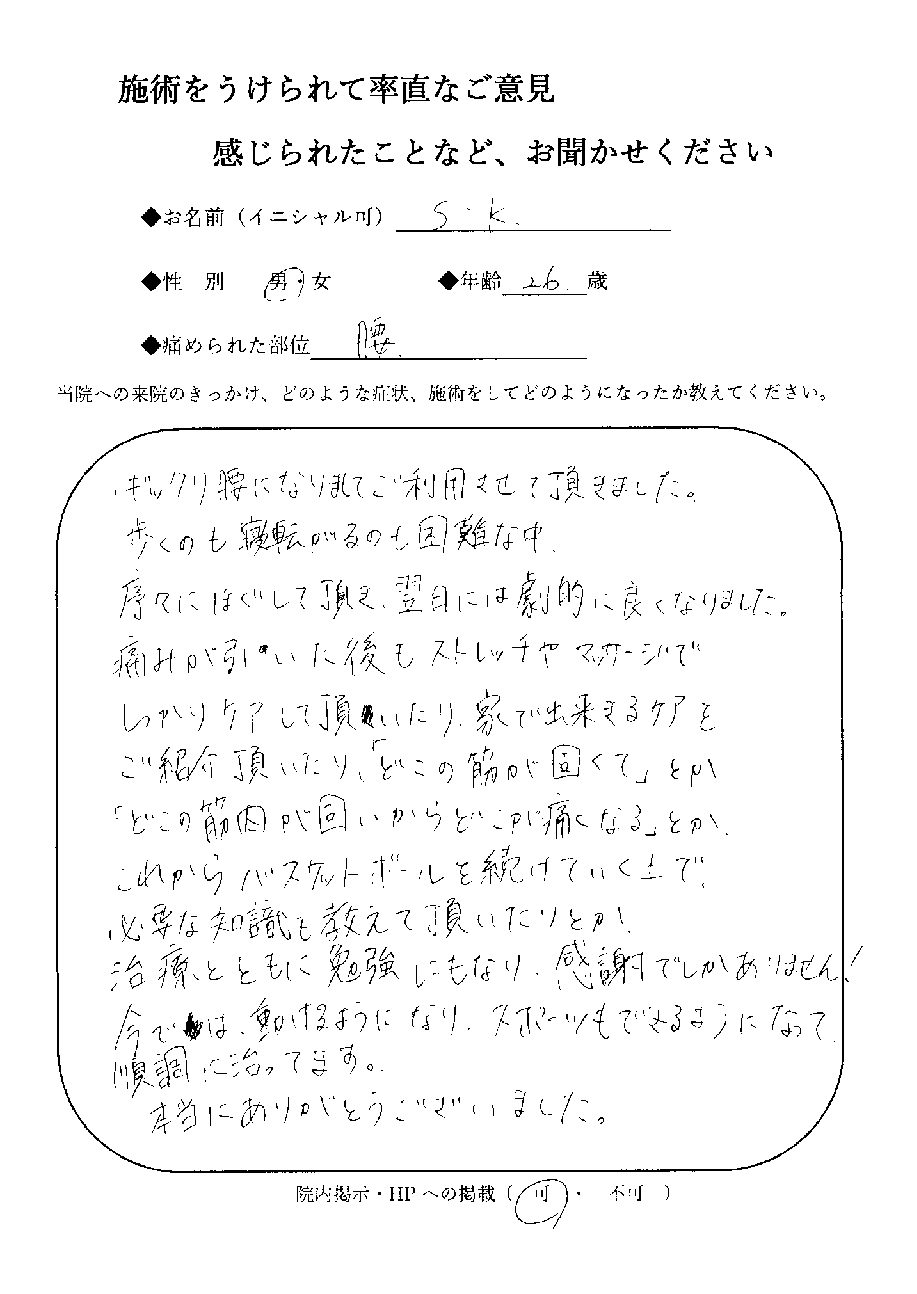 施術をうけられて率直なご意見
感じられたことなど、お聞かせください
◆お名前（イニシャル可） S・K.
◆性　別　男・女　◆年齢 26 歳
◆痛められた部位 腰
当院への来院のきっかけ、どのような症状、施術をしてどのようになったか教えてください。
ギックリ腰になりましてご利用させて頂きました。
歩くのも寝転がるのも困難な中、
序々にほぐして頂き、翌日には劇的に良くなりました。
痛みが引いた後もストレッチやマッサージで
しっかりケアして頂いたり、家で出来まるケアを
ご紹介頂いたり、「どこの筋が固くて」とか
「どこの筋肉が固いからどこが痛くなる」とか、
これからバスケットボールを続けていく上で、
必要な知識も教えて頂いたりとか、
治療とともに勉強にもなり、感謝でしかありません！
今では、動けるようになり、スポーツもできるようになって
順調に治ってます。
本当にありがとうございました。
院内掲示・HPへの掲載（　可　・　不可　）